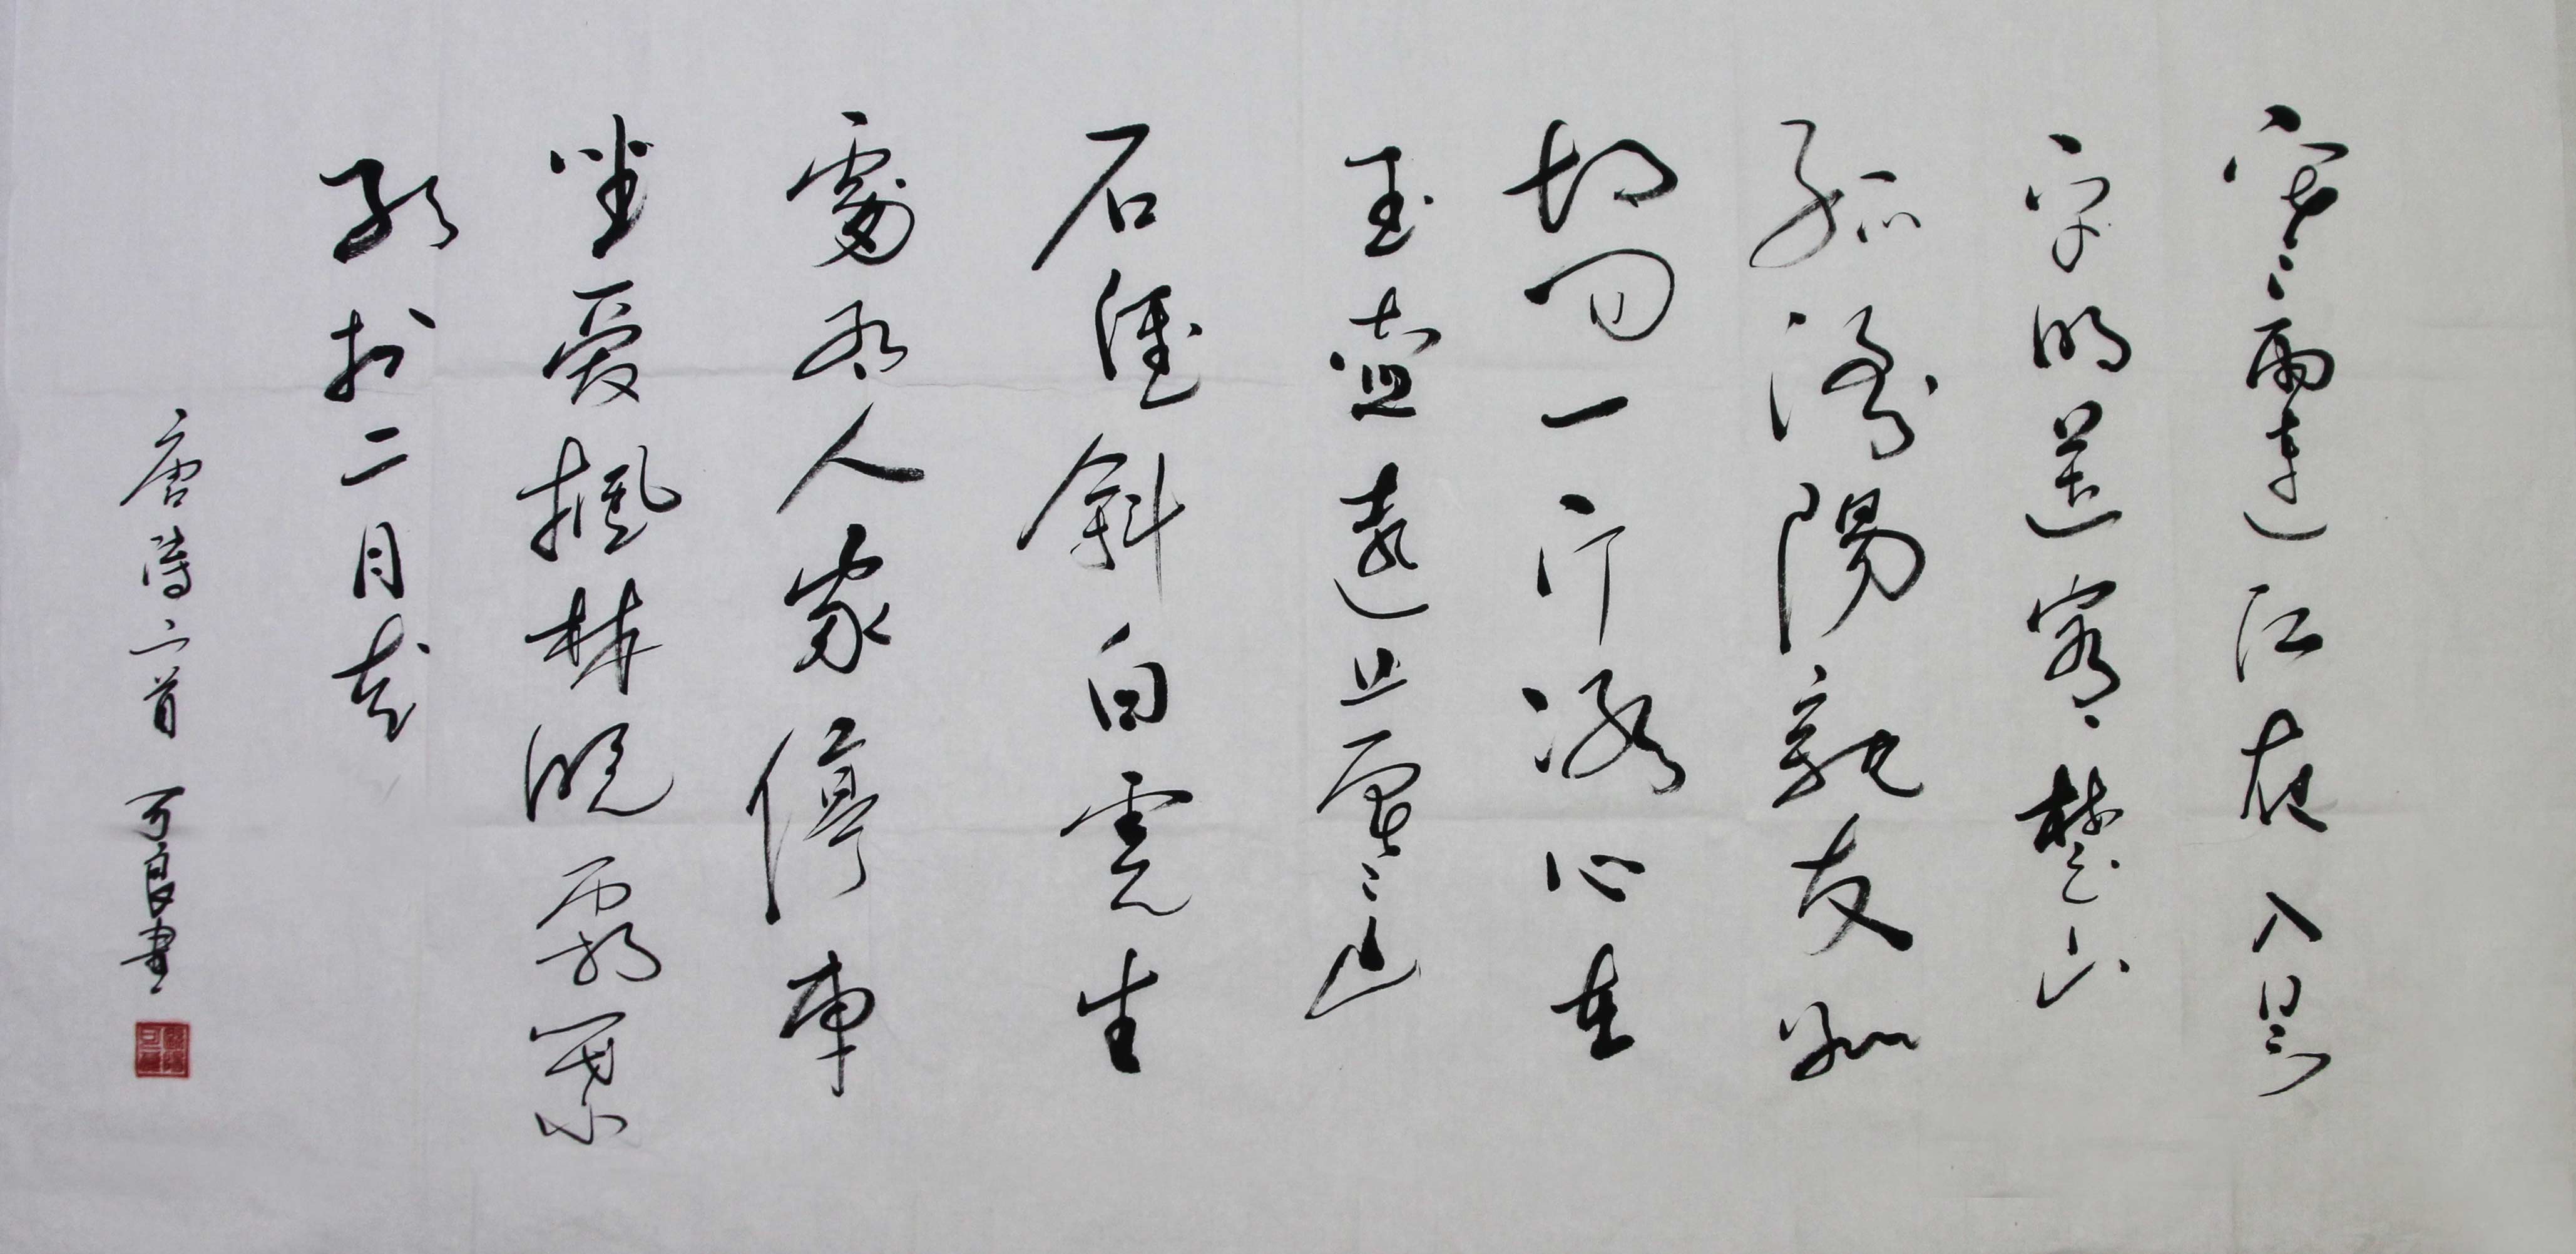 寒雨連江夜入吳
平明送客楚山
孤洛陽親友如
相問一片冰心在
玉壺遠上寒山
石徑斜白雲生
處有人家停車
坐愛楓林晚霜葉
紅於二月花
唐詩二首 可良書